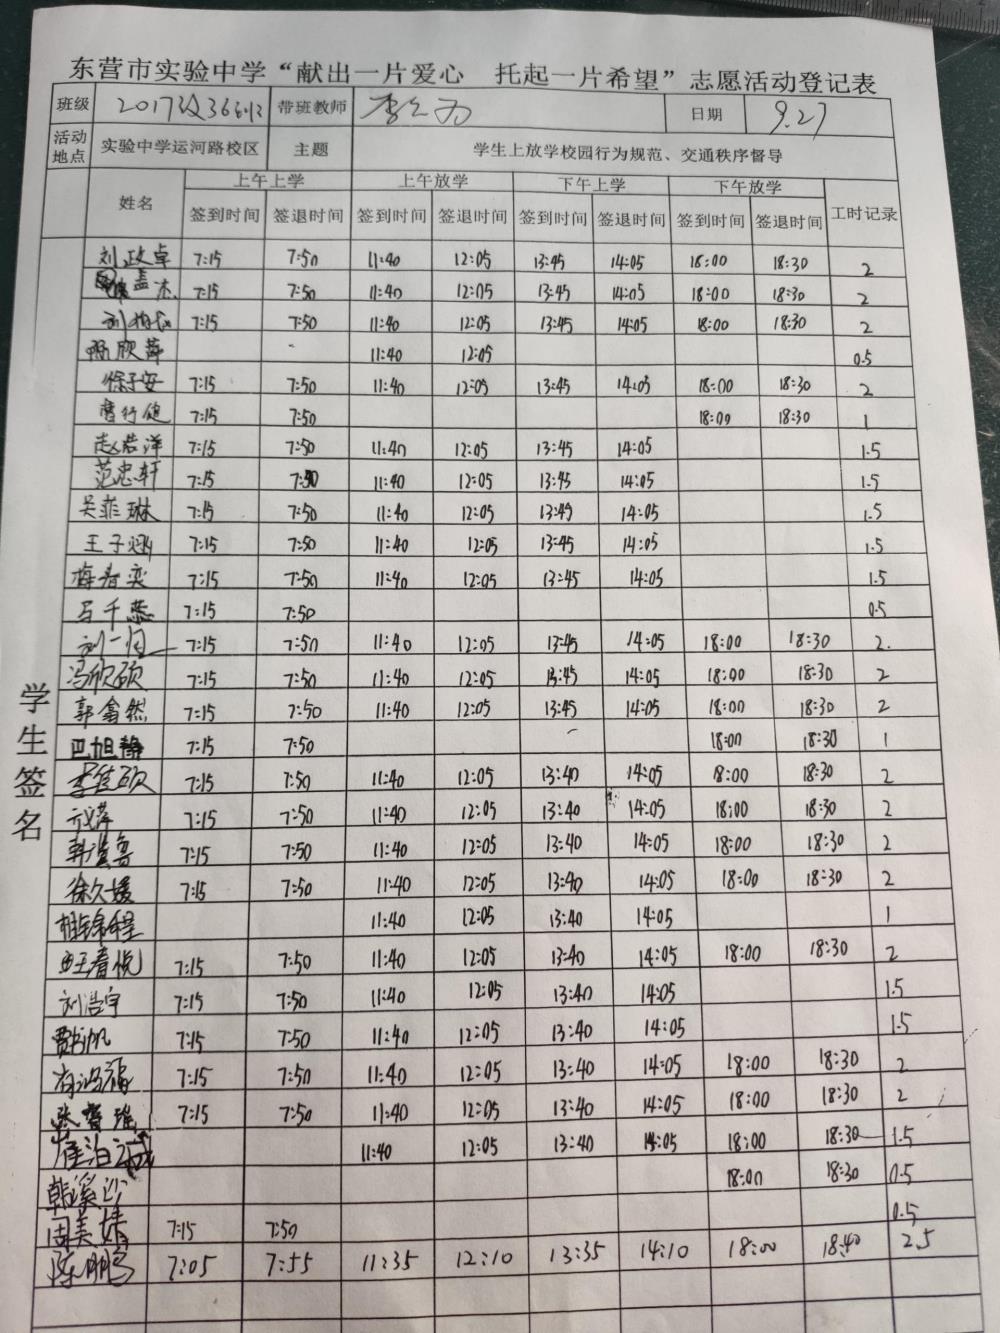 东营市实验中学“献出一片爱心 托起一片希望”志愿活动登记表
班级 2017级36班 带班教师 日期 9.27
活动地点 实验中学运河路校区 主题 学生上放学校园行为规范、交通秩序督导
姓名 上午上学 上午放学 下午上学 下午放学 工时记录
签到时间 签退时间 签到时间 签退时间 签到时间 签退时间 签到时间 签退时间
学生签名
刘政卓 7:15 7:50 11:40 12:05 13:45 14:05 18:00 18:30 2
7:15 7:50 11:40 12:05 13:45 14:05 18:00 18:30 2
7:15 7:50 11:40 12:05 13:45 14:05 18:00 18:30 2
11:40 12:05 0.5
徐子安 7:15 7:50 11:40 12:05 13:45 14:05 18:00 18:30 2
曹行健 7:15 7:50 18:00 18:30 1
赵若洋 7:15 7:50 11:40 12:05 13:45 14:05 1.5
范忠轩 7:15 7:50 11:40 12:05 13:45 14:05 1.5
吴菲琳 7:15 7:50 11:40 12:05 13:45 14:05 1.5
王子涵 7:15 7:50 11:40 12:05 13:45 14:05 1.5
7:15 7:50 11:40 12:05 13:45 14:05 1.5
马千蕊 7:15 7:50 0.5
刘一 7:15 7:50 11:40 12:05 13:45 14:05 18:00 18:30 2.
冯欣硕 7:15 7:50 11:40 12:05 13:45 14:05 18:00 18:30 2
郭鑫然 7:15 7:50 11:40 12:05 13:45 14:05 18:00 18:30 2
巴旭静 7:15 7:50 18:00 18:30 1
李佳硕 7:15 7:50 11:40 12:05 13:40 14:05 18:00 18:30 2
7:15 7:50 11:40 12:05 13:40 14:05 18:00 18:30 2
7:15 7:50 11:40 12:05 13:40 14:05 18:00 18:30 2
徐久媛 7:15 7:50 11:40 12:05 13:40 14:05 18:00 18:30 2
锦程 11:40 12:05 13:40 14:05 1
王春悦 7:15 7:50 11:40 12:05 13:40 14:05 18:00 18:30 2
刘浩宇 7:15 7:50 11:40 12:05 13:40 14:05 1.5
7:15 7:50 11:40 12:05 13:40 14:05 1.5
7:15 7:50 11:40 12:05 13:40 14:05 18:00 18:30 2
7:15 7:50 11:40 12:05 13:40 14:05 18:00 18:30 2
崔泊 11:40 12:05 13:40 14:05 18:00 18:30 1.5
韩溪汐 18:00 18:30 0.5
周美婧 7:15 7:50 0.5
陈鹏 7:05 7:55 11:35 12:10 13:35 14:10 18:00 18:40 2.5